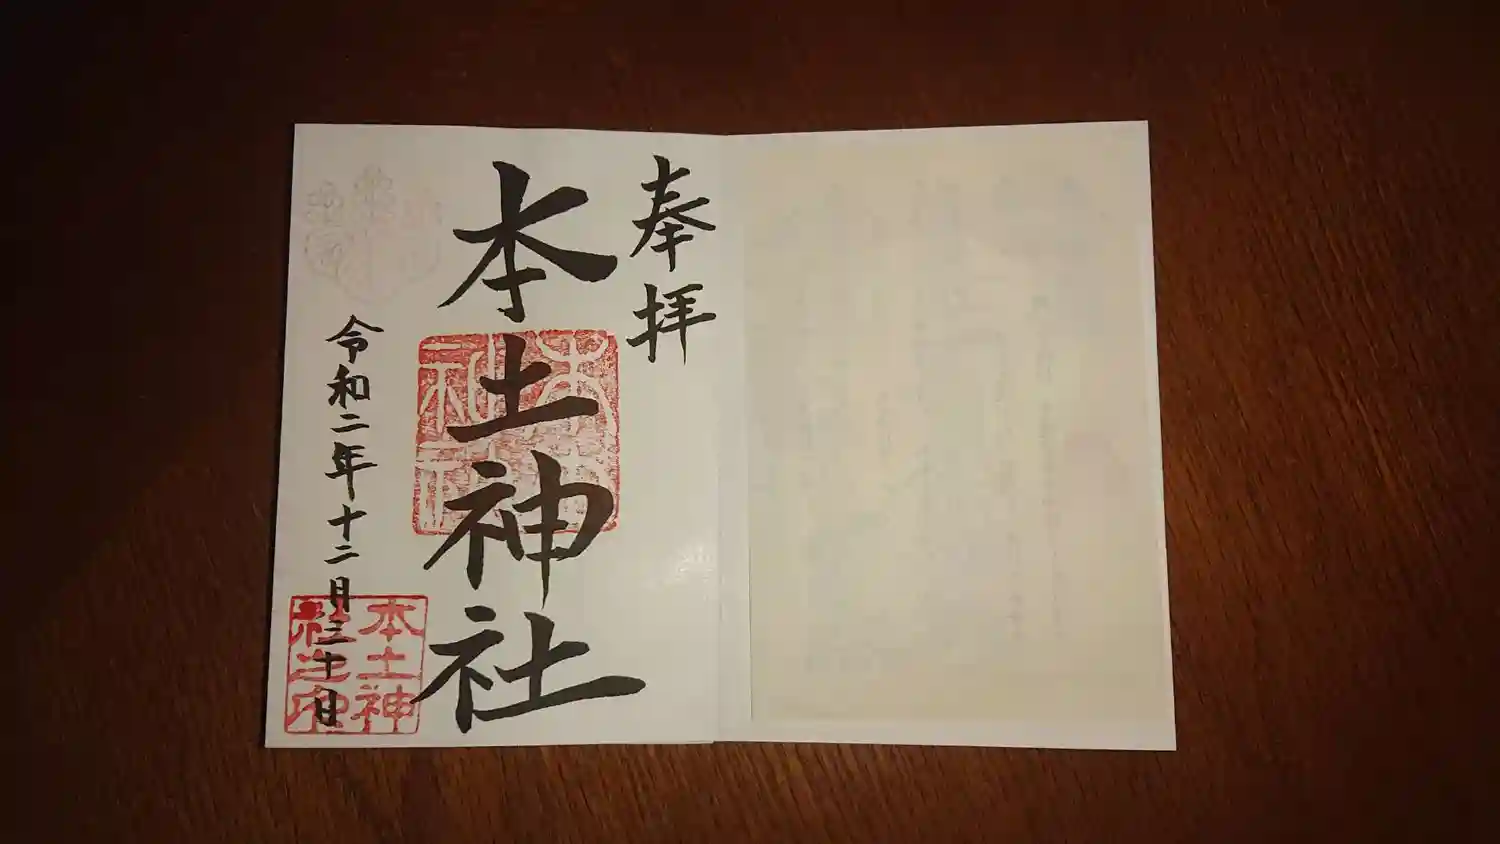 奉拝
本土神社
令和二年十二月三十日
本土神
社之印